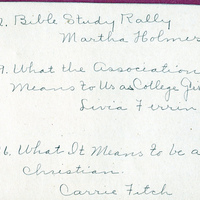 2. Bible Study Rally
Martha Holmes
9. What the Association
Means to Us as College Gi
Livia Ferrin
6. What It Means to be a
Christian.
Carrie Fitch